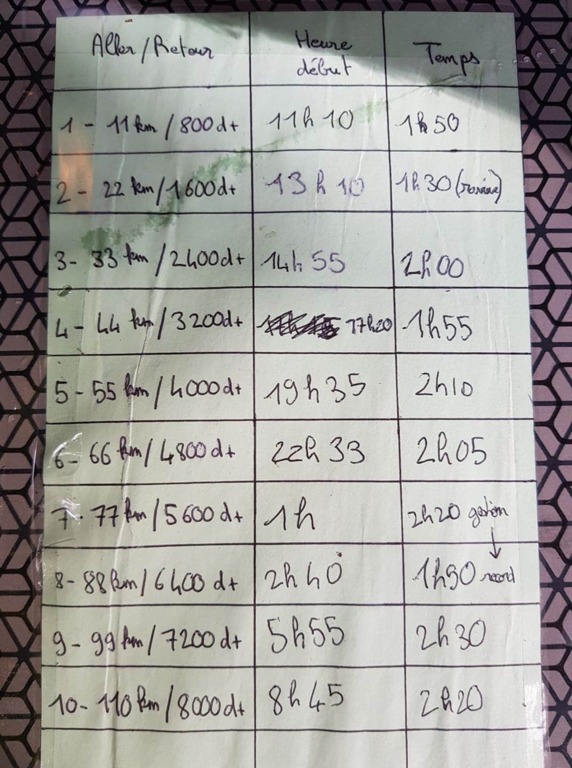 Aller/Retour Heure début Temps
1 - 11 km / 800d+ 11h10 1h50
2 - 22 km / 1600d+ 13h10 1h30
3 - 33 km / 2400d+ 14h55 2h00
4 - 44 km / 3200d+ 17h20 1h55
5 - 55 km / 4000d+ 19h35 2h10
6 - 66 km / 4800d+ 22h33 2h05
7 - 77 km / 5600d+ 1h 2h20 gestion
8 - 88 km / 6400d+ 2h40 1h50 record
9 - 99 km / 7200d+ 5h55 2h30
10 - 110 km / 8000d+ 8h45 2h20